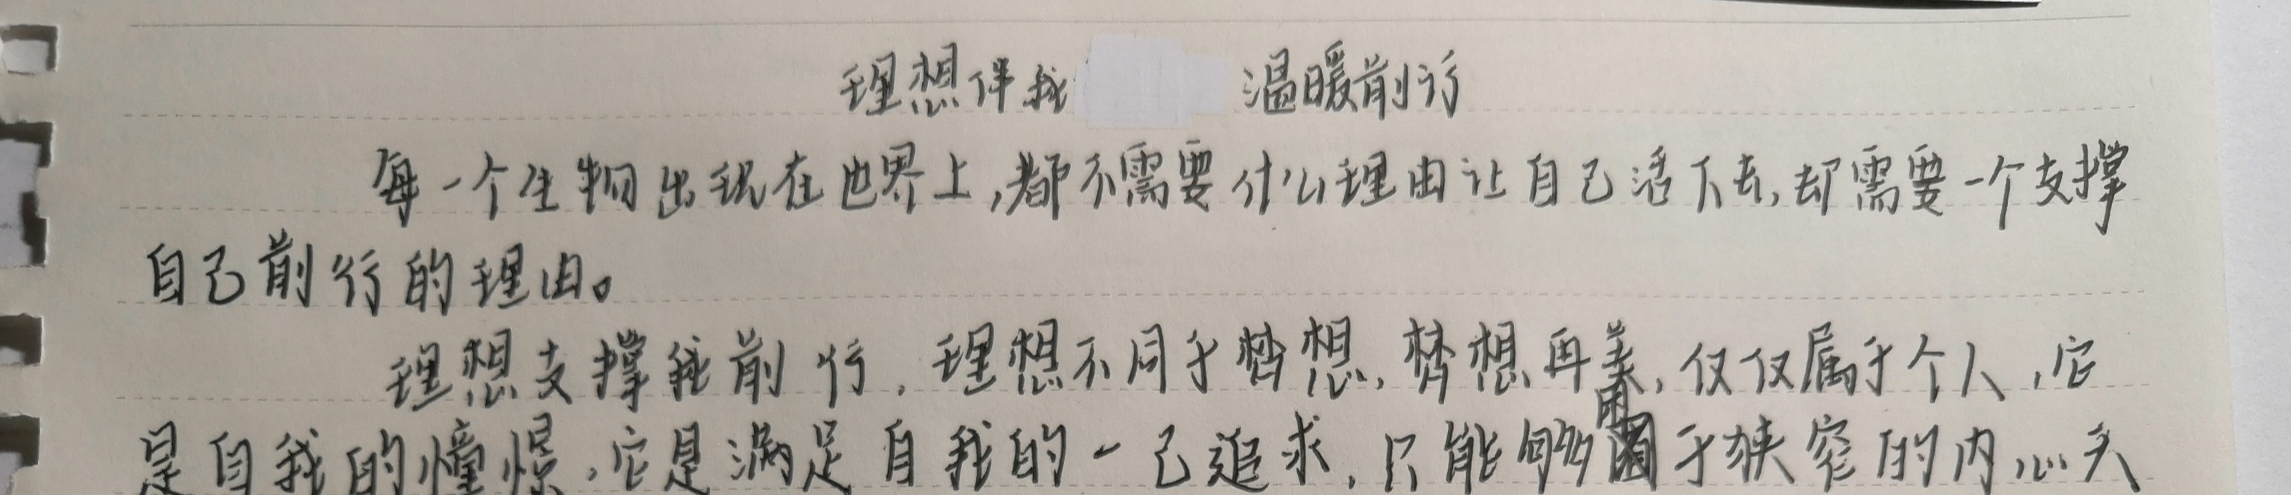 理想伴我 温暖前行
每一个生物出现在世界上,都不需要什么理由让自己活下去,却需要一个支撑
自己前行的理由。
理想支撑我前行,理想不同于梦想,梦想再美,仅仅属于个人,它
是自我的憧憬,它是满足自我的一己追求,只能够囿于狭窄的内心天